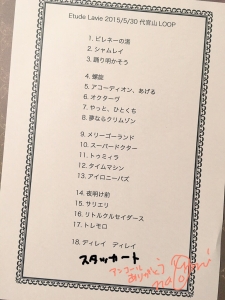 Etude Lavie 2015/5/30 代官山LOOP
1. ピレネーの湯
2. シャムレイ
3. 踊り明かそう
4. 螺旋
5. アコーディオン、あげる
6. オクターヴ
7. やっと、ひとくち
8. 夢ならクリムゾン
9. メリーゴーランド
10. スーパードクター
11. トゥミィラ
12. タイムマシン
13. アイロニーバズ
14. 夜明け前
15. サリエリ
16. リトルクルセイダース
17. トレモロ
18. ディレイ ディレイ
スタッカート
アンコール
ありがとう